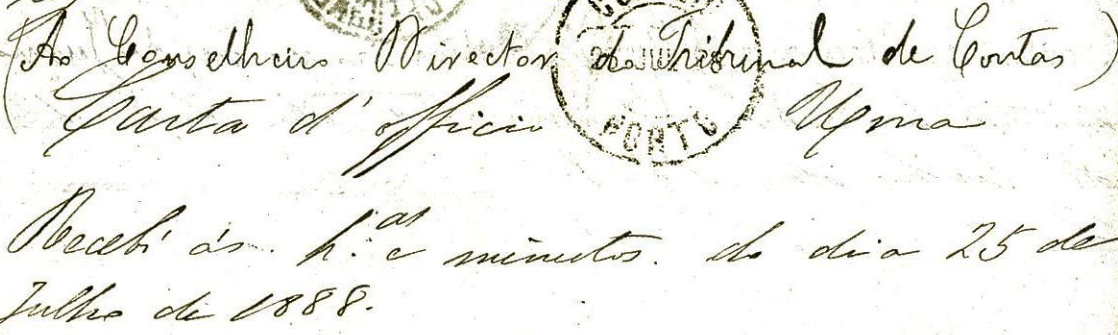 (Ao Conselheiro Director do Tribunal de Contas)
Carta d'officio Uma
PORTO
Recebi ás h.as e minutos do dia 25 de
Julho de 1888.